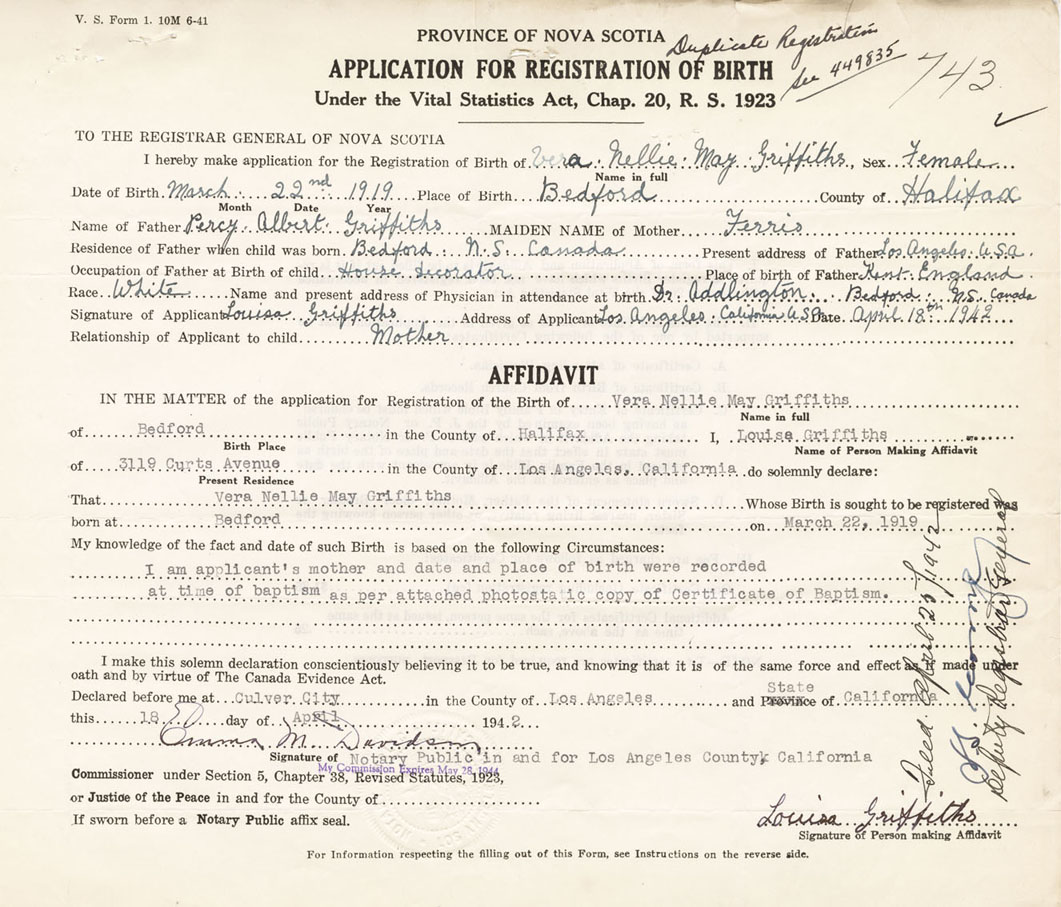 V. S. Form 1. 10M 6-41
PROVINCE OF NOVA SCOTIA
Duplicate Registration
See 449835
743
APPLICATION FOR REGISTRATION OF BIRTH
Under the Vital Statistics Act, Chap. 20, R. S. 1923
TO THE REGISTRAR GENERAL OF NOVA SCOTIA
I hereby make application for the Registration of Birth of Vera Nellie May Griffiths, Sex Female
Name in full
Date of Birth March 22nd 1919 Place of Birth Bedford County of Halifax
Month Date Year
Name of Father Percy Albert Griffiths MAIDEN NAME of Mother Ferris
Residence of Father when child was born Bedford N.S. Canada Present address of Father Los Angeles U.S.A.
Occupation of Father at Birth of child House Decorator Place of birth of Father Kent England
Race White Name and present address of Physician in attendance at birth Dr. Addlington Bedford N.S. Canada
Signature of Applicant Louisa Griffiths Address of Applicant Los Angeles California U.S.A. Date April 18th 1942
Relationship of Applicant to child Mother
AFFIDAVIT
IN THE MATTER of the application for Registration of the Birth of Vera Nellie May Griffiths
Name in full
of Bedford in the County of Halifax I, Louise Griffiths
Birth Place Name of Person Making Affidavit
of 3119 Curts Avenue in the County of Los Angeles, California do solemnly declare:
Present Residence
That Vera Nellie May Griffiths Whose Birth is sought to be registered was
born at Bedford on March 22, 1919
My knowledge of the fact and date of such Birth is based on the following Circumstances:
I am applicant's mother and date and place of birth were recorded
at time of baptism as per attached photostatic copy of Certificate of Baptism.
I make this solemn declaration conscientiously believing it to be true, and knowing that it is of the same force and effect as if made under
oath and by virtue of The Canada Evidence Act.
State
Declared before me at Culver City in the County of Los Angeles and Province of California
this 18 day of April 1942.
Emma M. Davidson
Signature of Notary Public in and for Los Angeles County, California
My Commission Expires May 28, 1944
Commissioner under Section 5, Chapter 38, Revised Statutes, 1923,
or Justice of the Peace in and for the County of
If sworn before a Notary Public affix seal.
Louisa Griffiths
Signature of Person making Affidavit
For Information respecting the filling out of this Form, see Instructions on the reverse side.
Filed April 25/1942
Deputy Registrar General